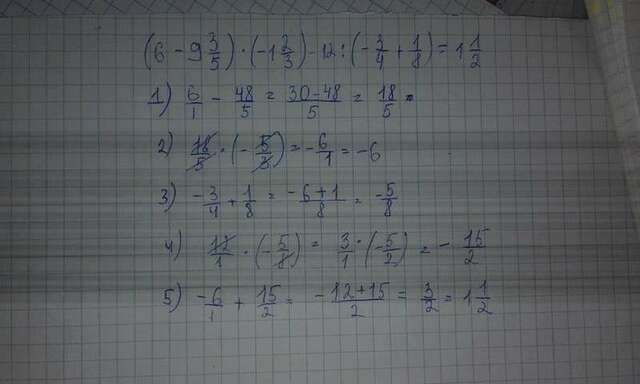 (6 - 9 3/5) · (-1 2/3) - 12 : (-3/4 + 1/8) = 1 1/2
1) 6/1 - 48/5 = 30-48/5 = 18/5 =
2) 18/5 · (-5/3) = -6/1 = -6
3) -3/4 + 1/8 = -6+1/8 = -5/8
4) 12/1 · (-5/8) = 3/1 · (-5/2) = -15/2
5) -6/1 + 15/2 = -12+15/2 = 3/2 = 1 1/2